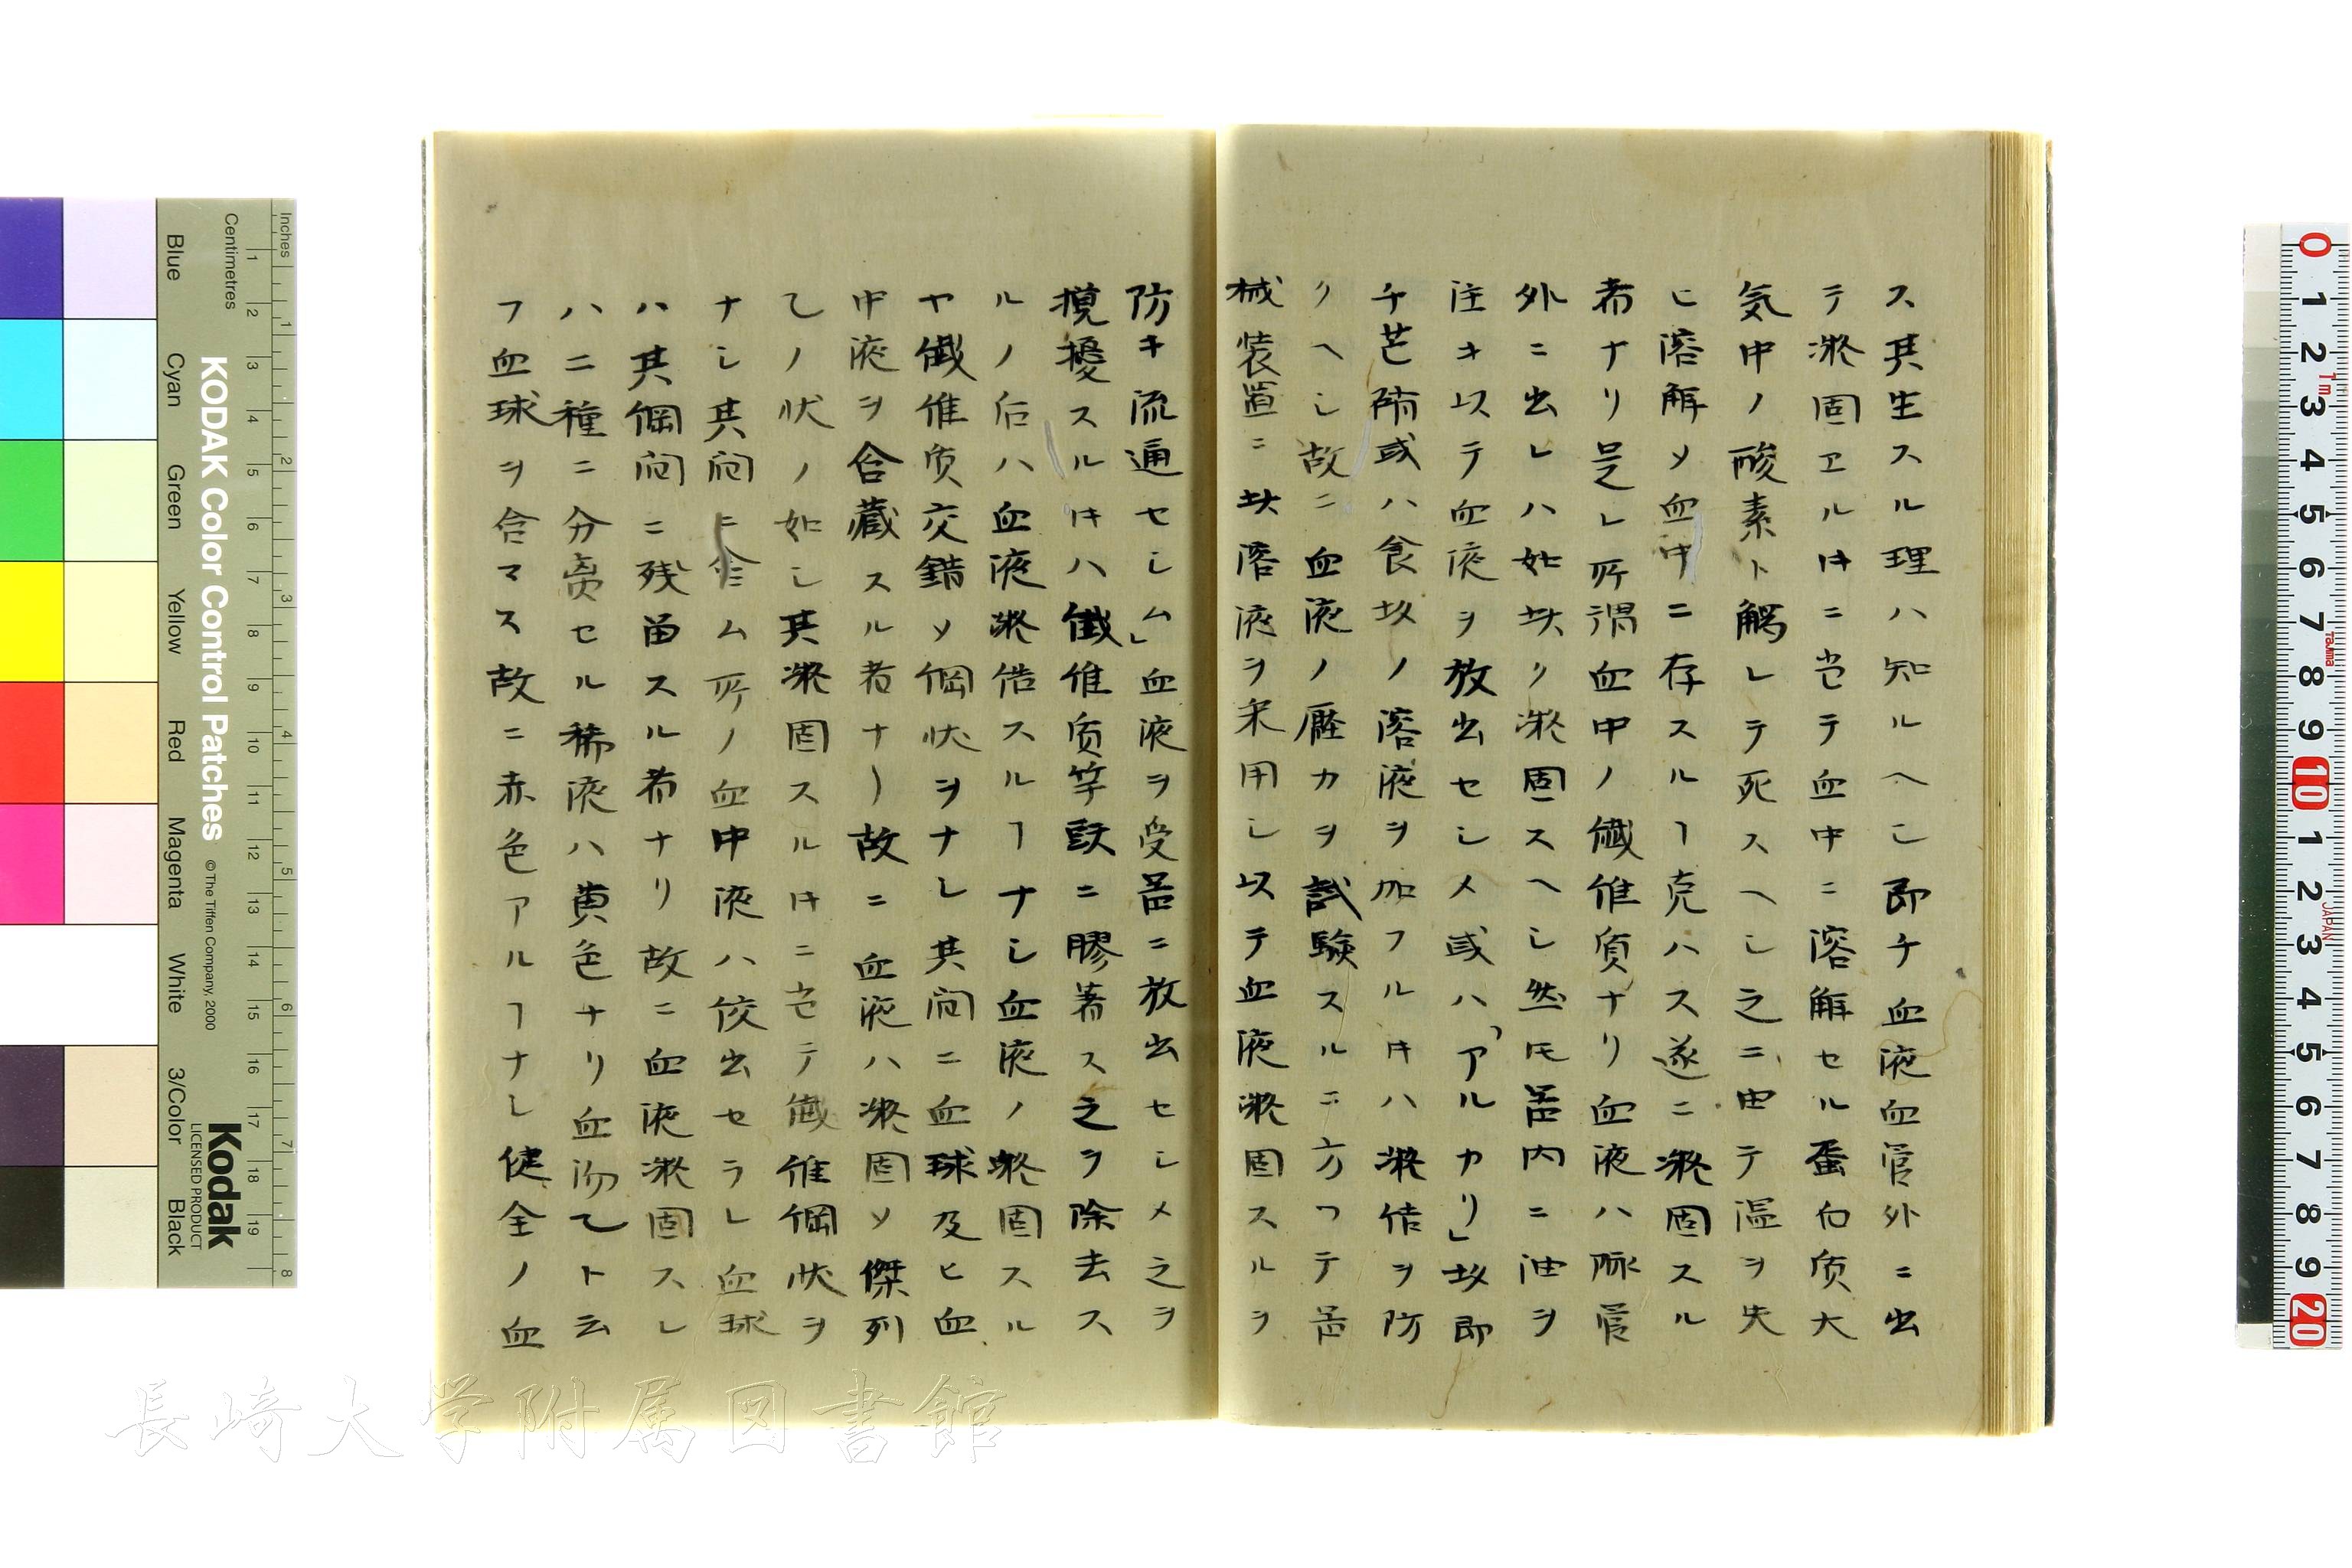 ス其生スル理ハ知ルヘシ即チ血液血管外ニ出
テ凝固スルキニ当テ血中ニ溶解セル蛋白质大
気中ノ酸素ト觸レテ死スヘシ之ニ由テ温ヲ失
ヒ溶解メ血中ニ存スルヿ克ハス遂ニ凝固スル
者ナリ是レ所謂血中ノ繊維质ナリ血液ハ脈管
外ニ出レハ如此ク凝固スヘシ然モ器内ニ油ヲ
注キ以テ血液ヲ放出セシメ或ハ「アルカリ」塩即
チ芒硝或ハ食塩ノ溶液ヲ加フルキハ凝结ヲ防
クヘシ故ニ血液ノ壓力ヲ試験スルニ方つテ器
械装置ニ此溶液ヲ采用シ以テ血液凝固スルヲ
防キ流通セシム」血液ヲ受器ニ放出セシメ之ヲ
攪擾スルキハ繊維质竿頭ニ膠著ス之ヲ除去ス
ルノ后ハ血液凝结スルヿナシ血液ノ凝固スル
ヤ繊維质交錯メ網状ヲナシ其间ニ血球及ヒ血
中液ヲ含蔵スル者ナリ故ニ血液ハ凝固メ傑列
乙ノ状ノ如シ其凝固スルキニ当テ繊維網状ヲ
ナシ其间ニ含ム所ノ血中液ハ佼出セラレ血球
ハ其網间ニ残留スル者ナリ故ニ血液凝固スレ
ハ二種ニ分离セル稀液ハ黄色ナリ血汤乙ト云
フ血球ヲ含マス故ニ赤色アルヿナシ健全ノ血
KODAK Color Control Patches
© The Tiffen Company, 2000
Kodak
LICENSED PRODUCT
Inches
Centimetres
Blue
Cyan
Green
Yellow
Red
Magenta
White
3/Color
Black
長崎大学附属図書館